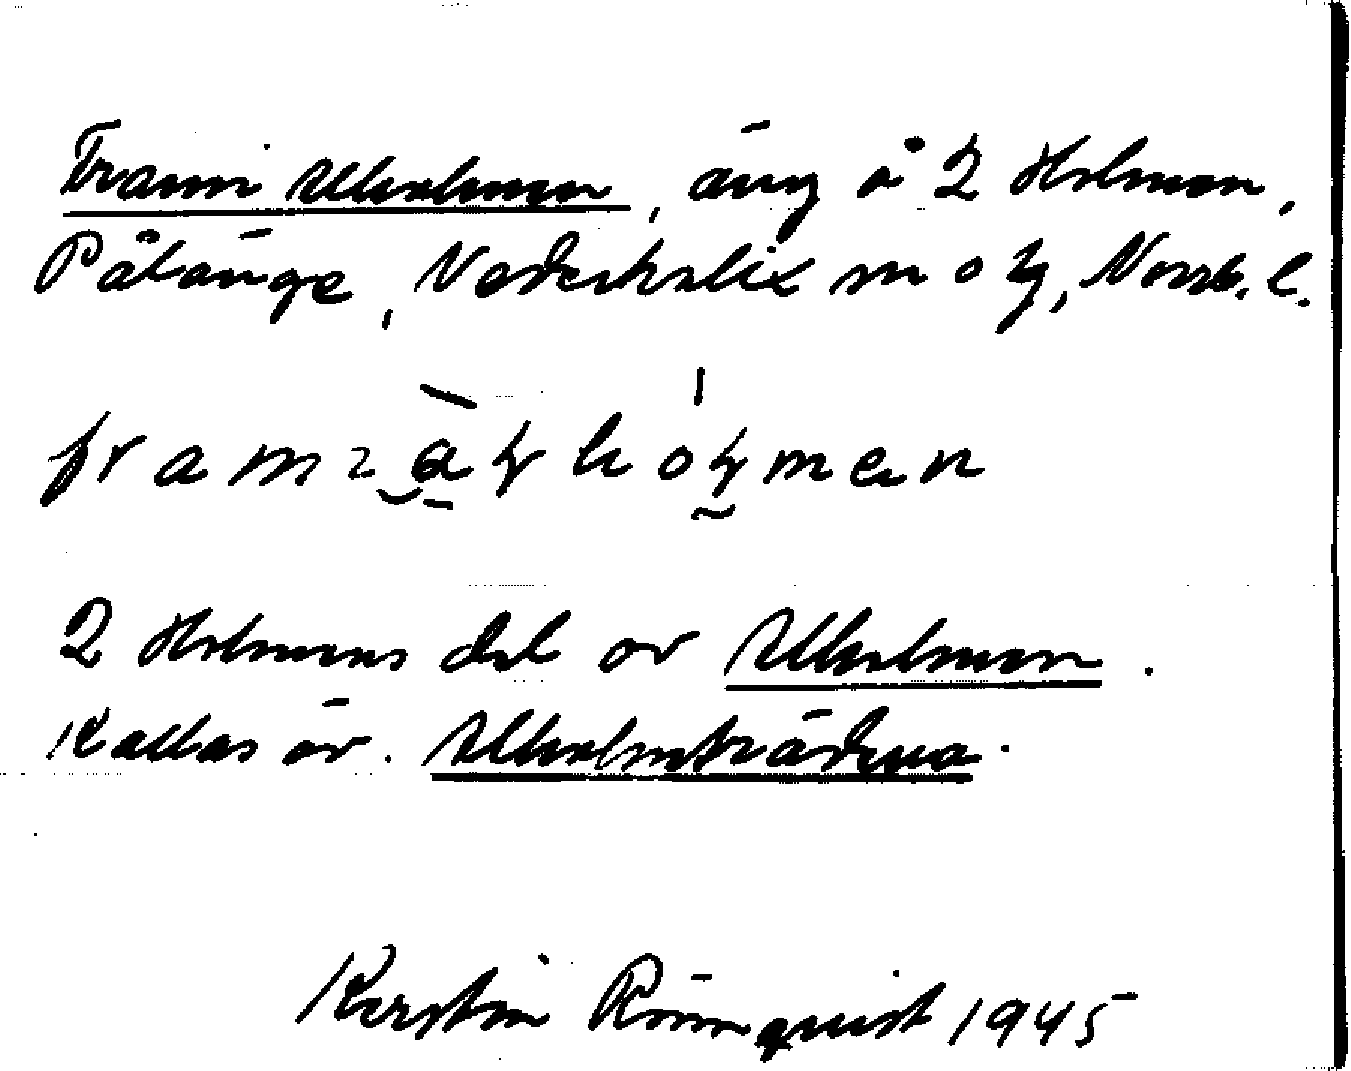 Frami Alholmen, äng å 2 Holmen,
Pålänge, Nederkalix sn o tg, Norrb. l.
2 Holmens del av Alholmen.
Kallas äv. Alholmträdena.
Kerstin Rönnquist 1945